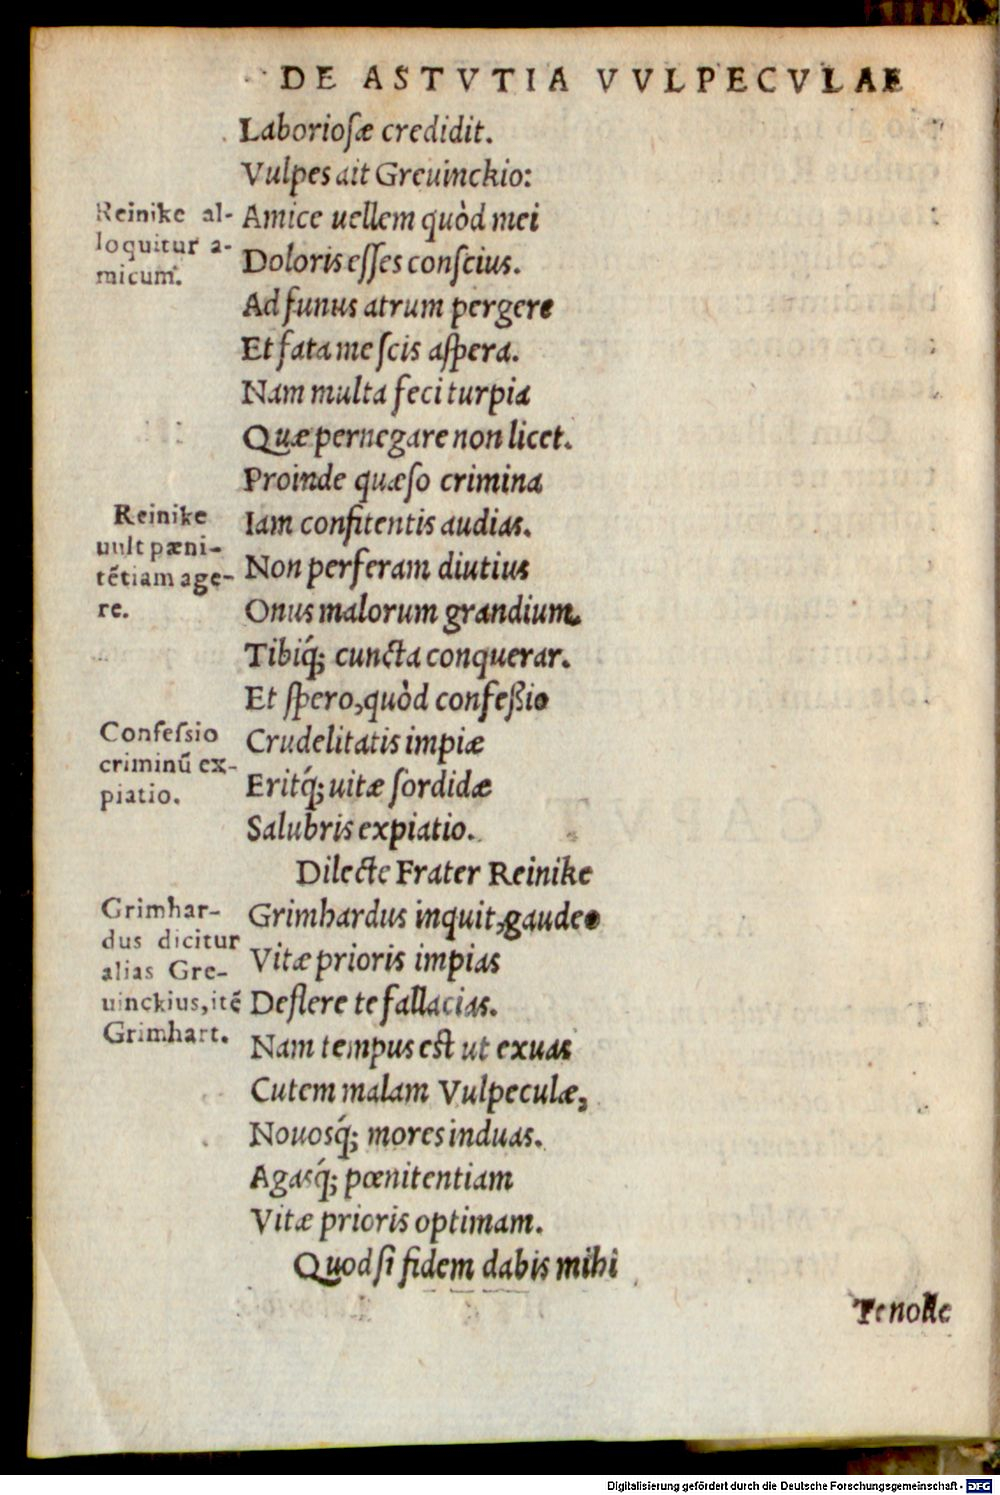 DE ASTVTIA VVLPECVLAE
Laborioſæ credidit.
Vulpes ait Greuinckio:
Reinike al-
loquitur a-
micum.
Amice uellem quòd mei
Doloris eſſes conſcius.
Ad funus atrum pergere
Et fata me ſcis aſpera.
Nam multa feci turpia
Quæ pernegare non licet.
Proinde quæſo crimina
Reinike
uult pæni-
tẽtiam age-
re.
Iam confitentis audias.
Non perferam diutius
Onus malorum grandium.
Tibiq́; cuncta conquerar.
Et ſpero, quòd confeßio
Confeſsio
criminũ ex-
piatio.
Crudelitatis impiæ
Eritq́; uitæ ſordidæ
Salubris expiatio.
Dilecte Frater Reinike
Grimhar-
dus dicitur
alias Gre-
uinckius, itẽ
Grimhart.
Grimhardus inquit, gaudeo
Vitæ prioris impias
Deflere te fallacias.
Nam tempus est ut exuas
Cutem malam Vulpeculæ,
Nouosq́; mores induas.
Agasq́; pœnitentiam
Vitæ prioris optimam.
Quod ſi fidem dabis mihi
Te nolle
Digitalisierung gefördert durch die Deutsche Forschungsgemeinschaft - DFG